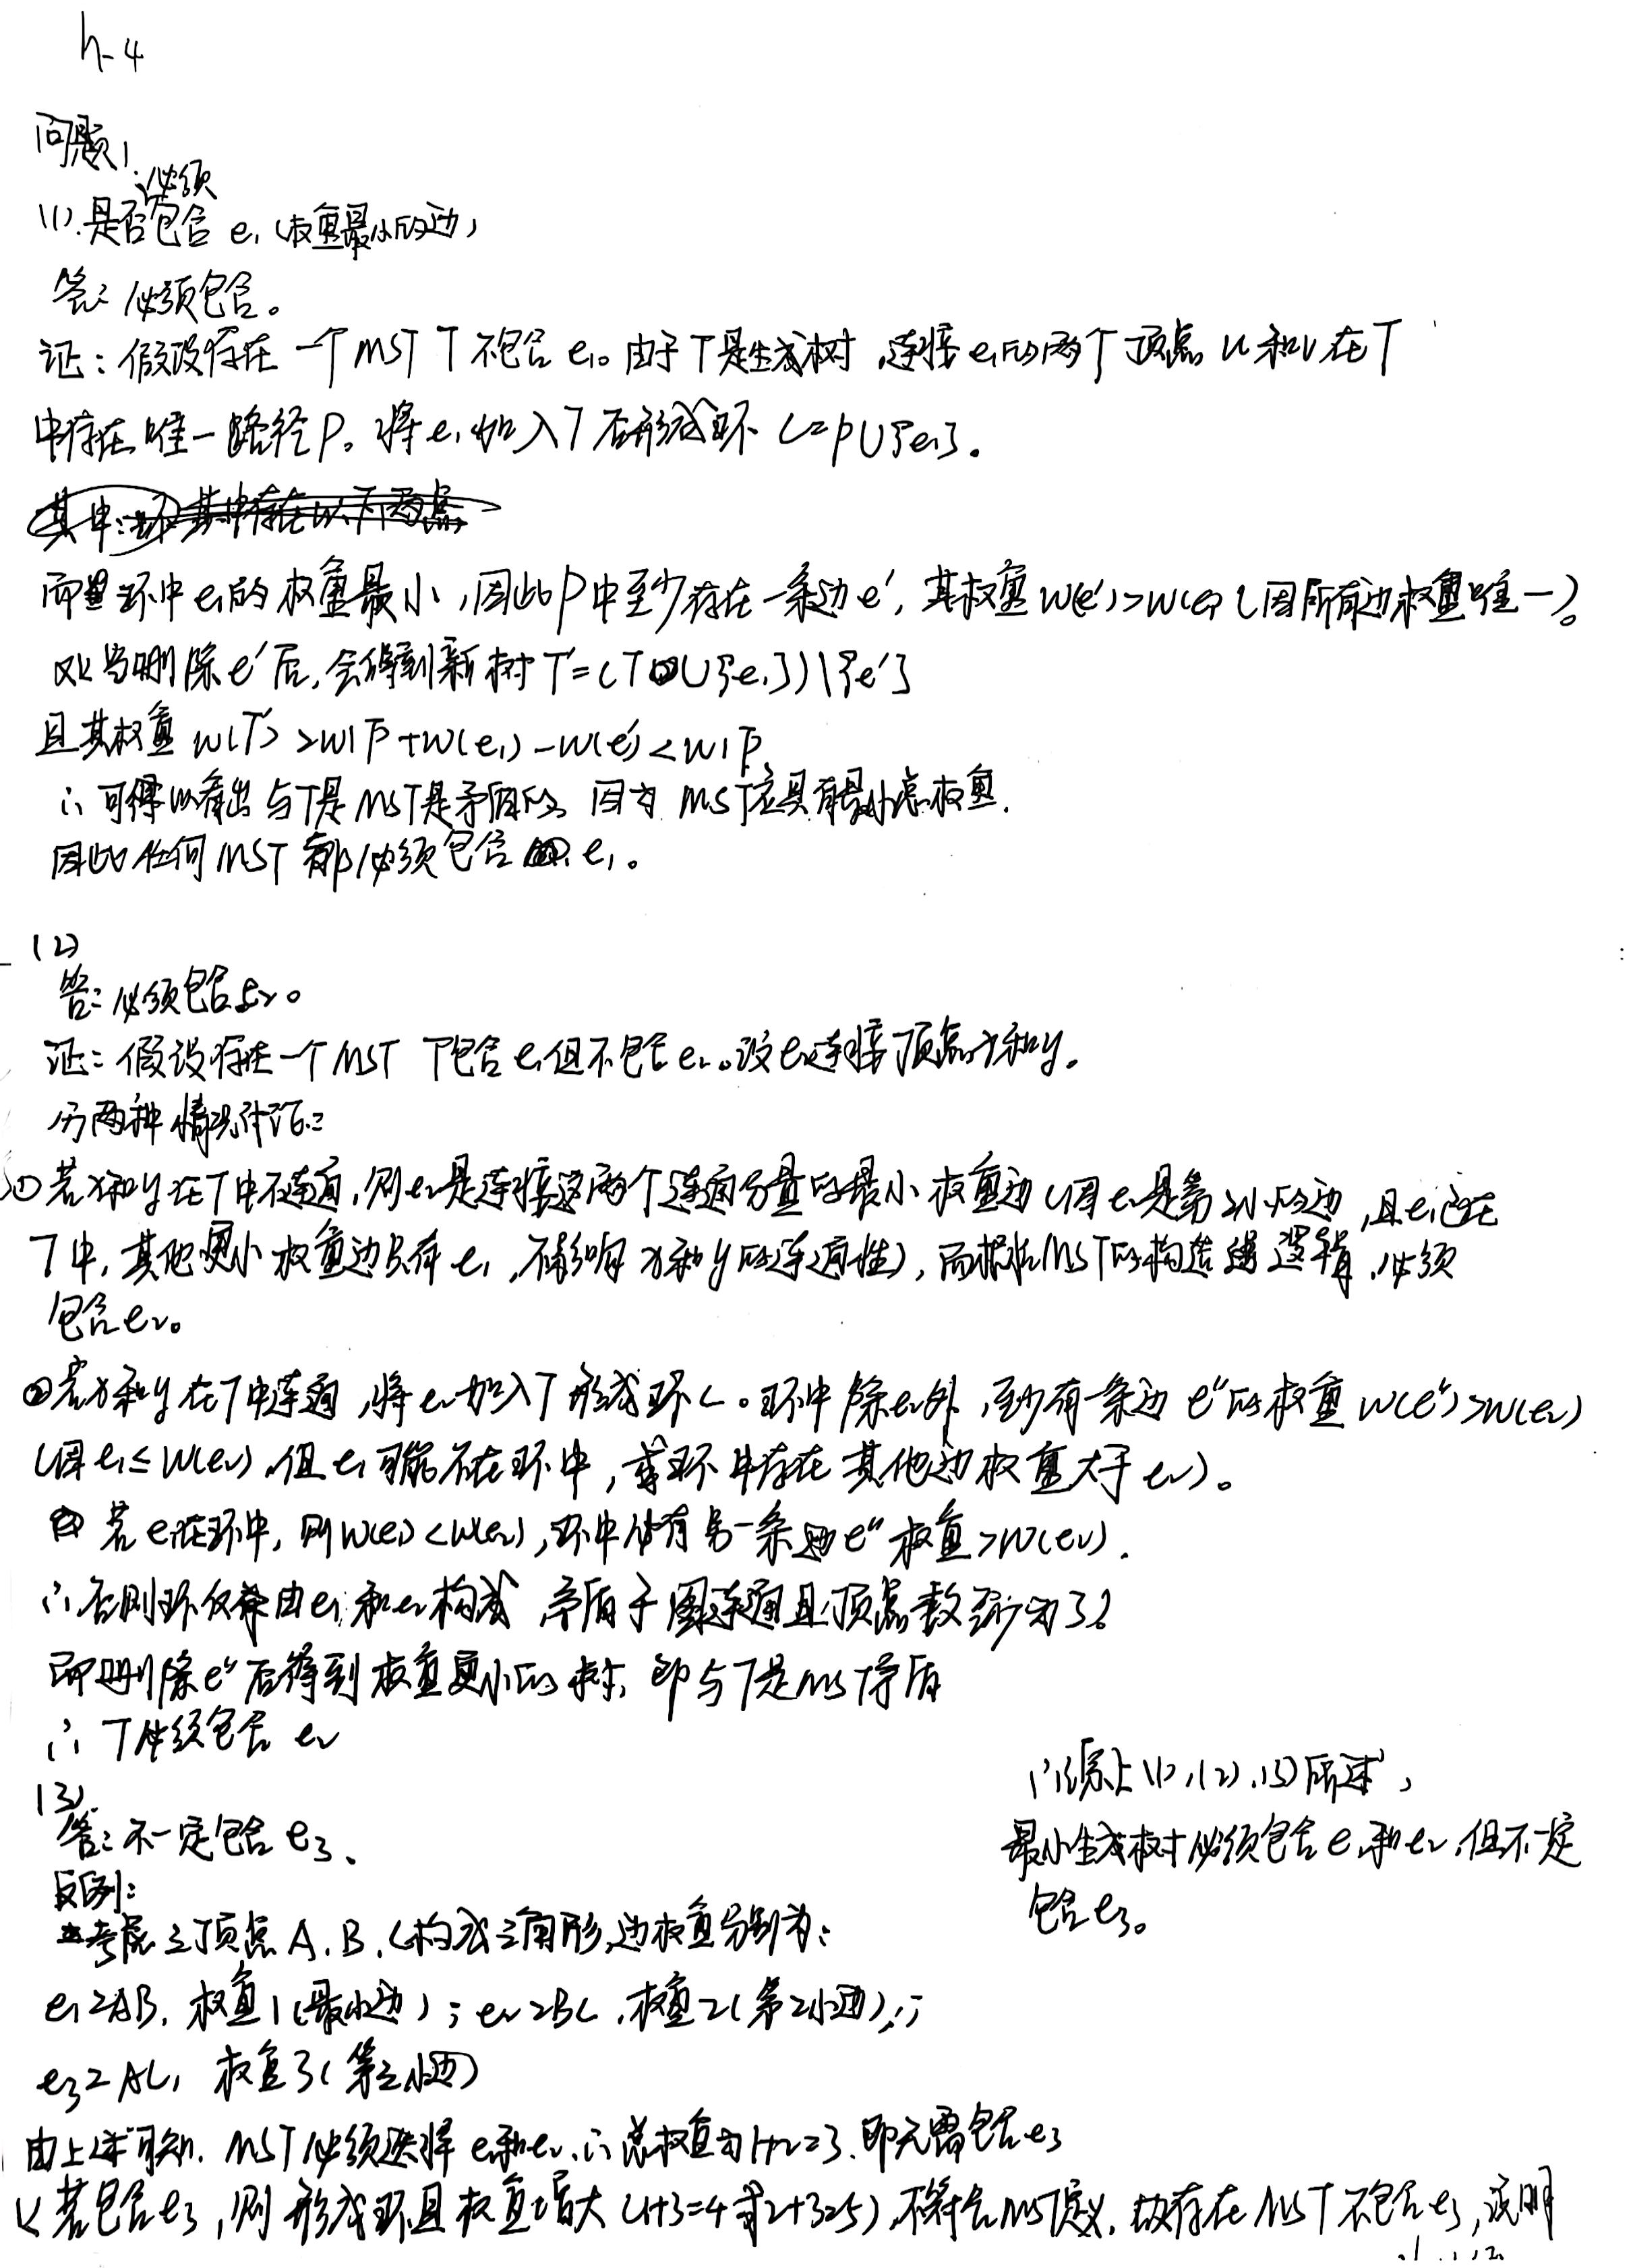 h-4
问题1:
必须
(1).是否包含 e₁ (权重最小的边)
答: 必须包含。
证: 假设存在一个MST T不包含e₁。由于T是生成树,连接e₁的两个顶点u和v在T
中存在唯一路径P。将e₁加入T后形成环 C=P∪{e₁}。
其中:环 其中存在以下两点
而环中e₁的权重最小,因此P中至少存在一条边e′, 其权重w(e′)>w(e₁) (因所有边权重唯一)。
当删除e′后,会得到新树T′=(T∪{e₁})\{e′}
且其权重 w(T′)=w(T)+w(e₁)-w(e′)<w(T).
∴可以看出与T是MST是矛盾的, 因为MST应具有最小总权重.
因此任何MST都必须包含e₁。
(2)
答: 必须包含e₂。
证: 假设存在一个MST T包含e₁但不包含e₂。设e₂连接顶点x和y。
分两种情况讨论:
①若x和y在T中不连通,则e₂是连接这两个连通分量的最小权重边(因e₂是第2小的边,且e₁已在
T中,其他更小权重边只有e₁,不影响x和y的连通性),而根据MST的构造逻辑,必须
包含e₂。
②若x和y在T中连通,将e₂加入T形成环C。环中除e₂外,至少有一条边e″的权重w(e″)>w(e₂)
(因e₁≤w(e₂),但e₁可能不在环中,或环中存在其他边权重大于e₂)。
若e₁在环中,则w(e₁)<w(e₂),环中必有另一条边e″权重>w(e₂).
∴否则环仅由e₁和e₂构成 矛盾于图连通且顶点数至少为3?
而删除e″后得到权重更小的树, 即与T是MST矛盾
∴T必须包含 e₂
(3).
答: 不一定包含e₃.
反例:
考虑三顶点A.B.C构成三角形,边权重分别为:
e₁=AB, 权重1(最小边); e₂=BC,权重2(第2小边);
e₃=AC, 权重3(第三小边)
由上述可知. MST必须选择e₁和e₂,∴总权重为1+2=3.即无需包含e₃
若包含e₃,则形成环且权重增大(1+3=4或2+3=5),不符合MST定义.故存在MST不包含e₃,说明
∴综上(1),(2),(3)所述,
最小生成树必须包含e₁和e₂,但不一定
包含e₃。